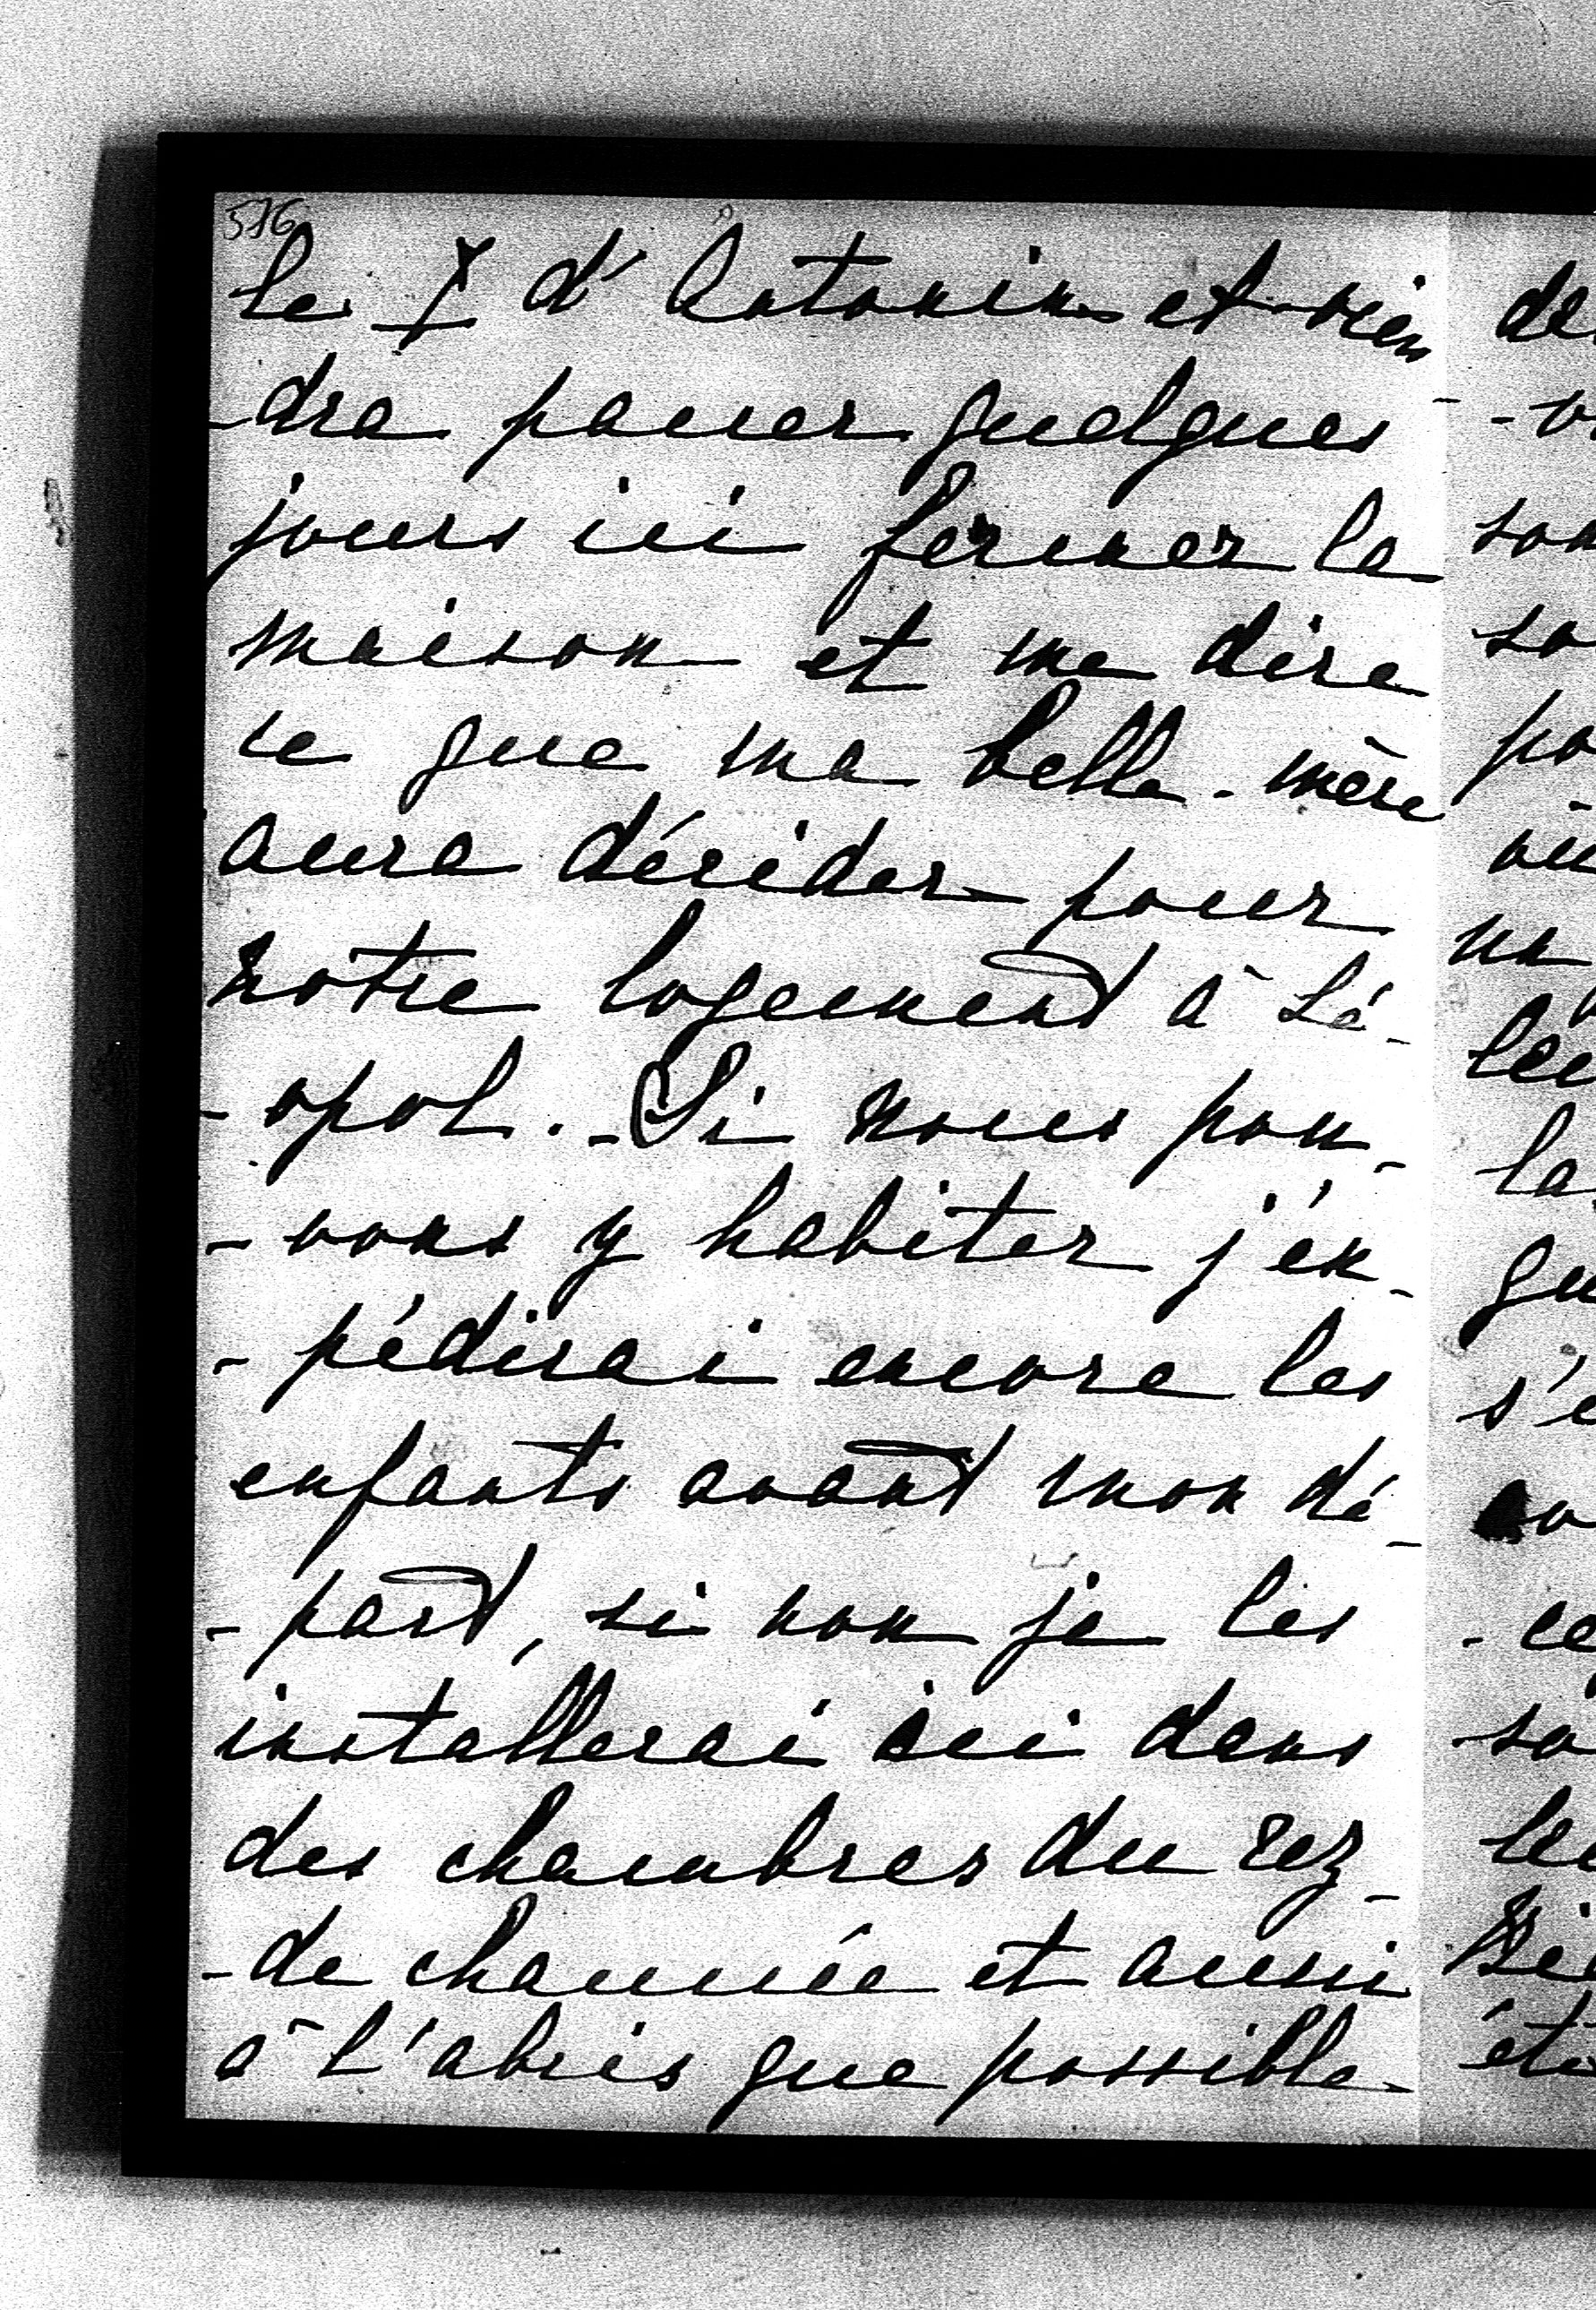 576
le X d'Antonin et vien
-dra passer quelques
jours ici fermer la
maison et me dire
ce que ma belle-mère
aura décider pour
notre logement à Lé-
-opol. - Si nous pou-
-vons y habiter j'ex-
-pédirai encore les
enfants avant mon dé-
-part, si non je les
installerai ici dans
des chambres du rez-
-de chaussée et aussi
à l'abris que possible